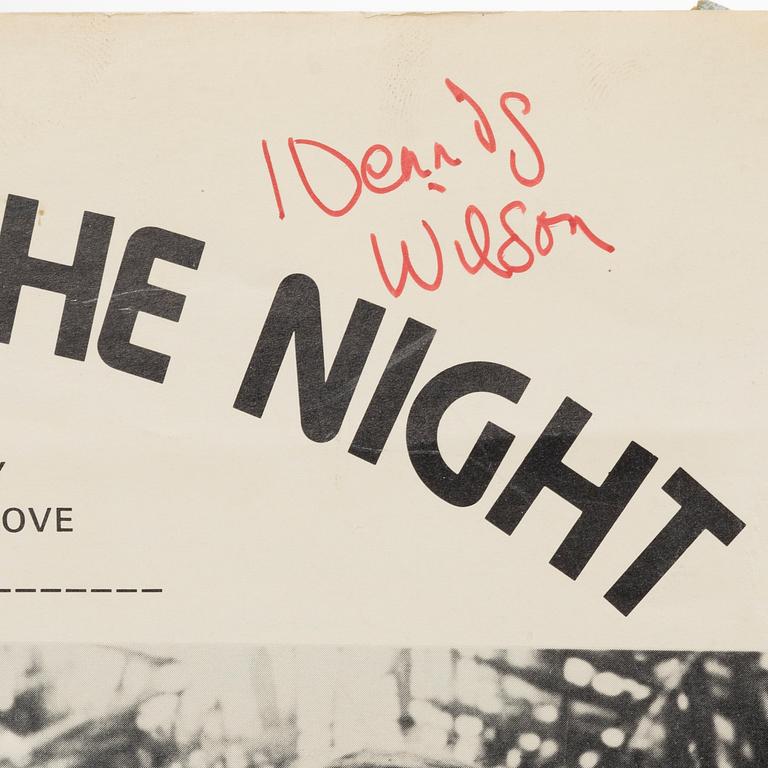 Dennis
Wilson
HE NIGHT
Y
OVE